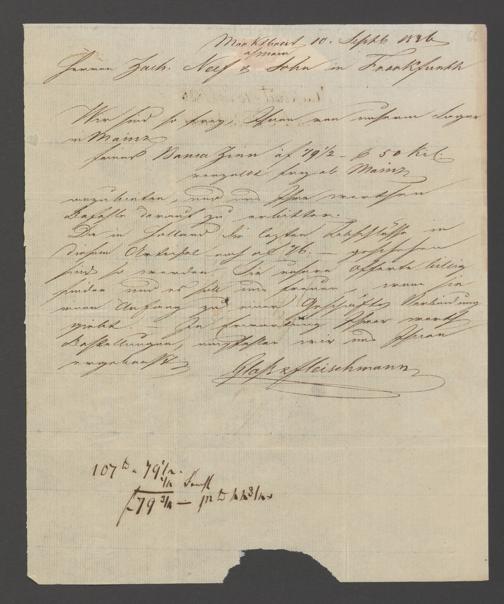 Marktbreit 10. Septb 1836
a/main
Herren Zach. Neef & Sohn in Frankfurth
Wir sind so frey, Ihnen von unserm Lager
in Mainz
feines Banca Zinn à f 79½ – 50 Kil.
verzollt frey ab Mainz
anzubieten, und uns Ihre werthen
Befehle darauf zu erbitten.
Da in Holland die lezten Abschlüsse in
diesem Artikel noch à f 46. – geschehen
sind so werden Sie unsere Offerte billig
finden und es soll uns freuen, wenn sie
einen Anfang zu einer Geschäfts Verbindung
giebt. – In Erwartung Ihrer werth
Bestellungen, empfehlen wir uns Ihnen
ergebenst
Glaß & Fleischmann
107 79½
f 79 ¾ –